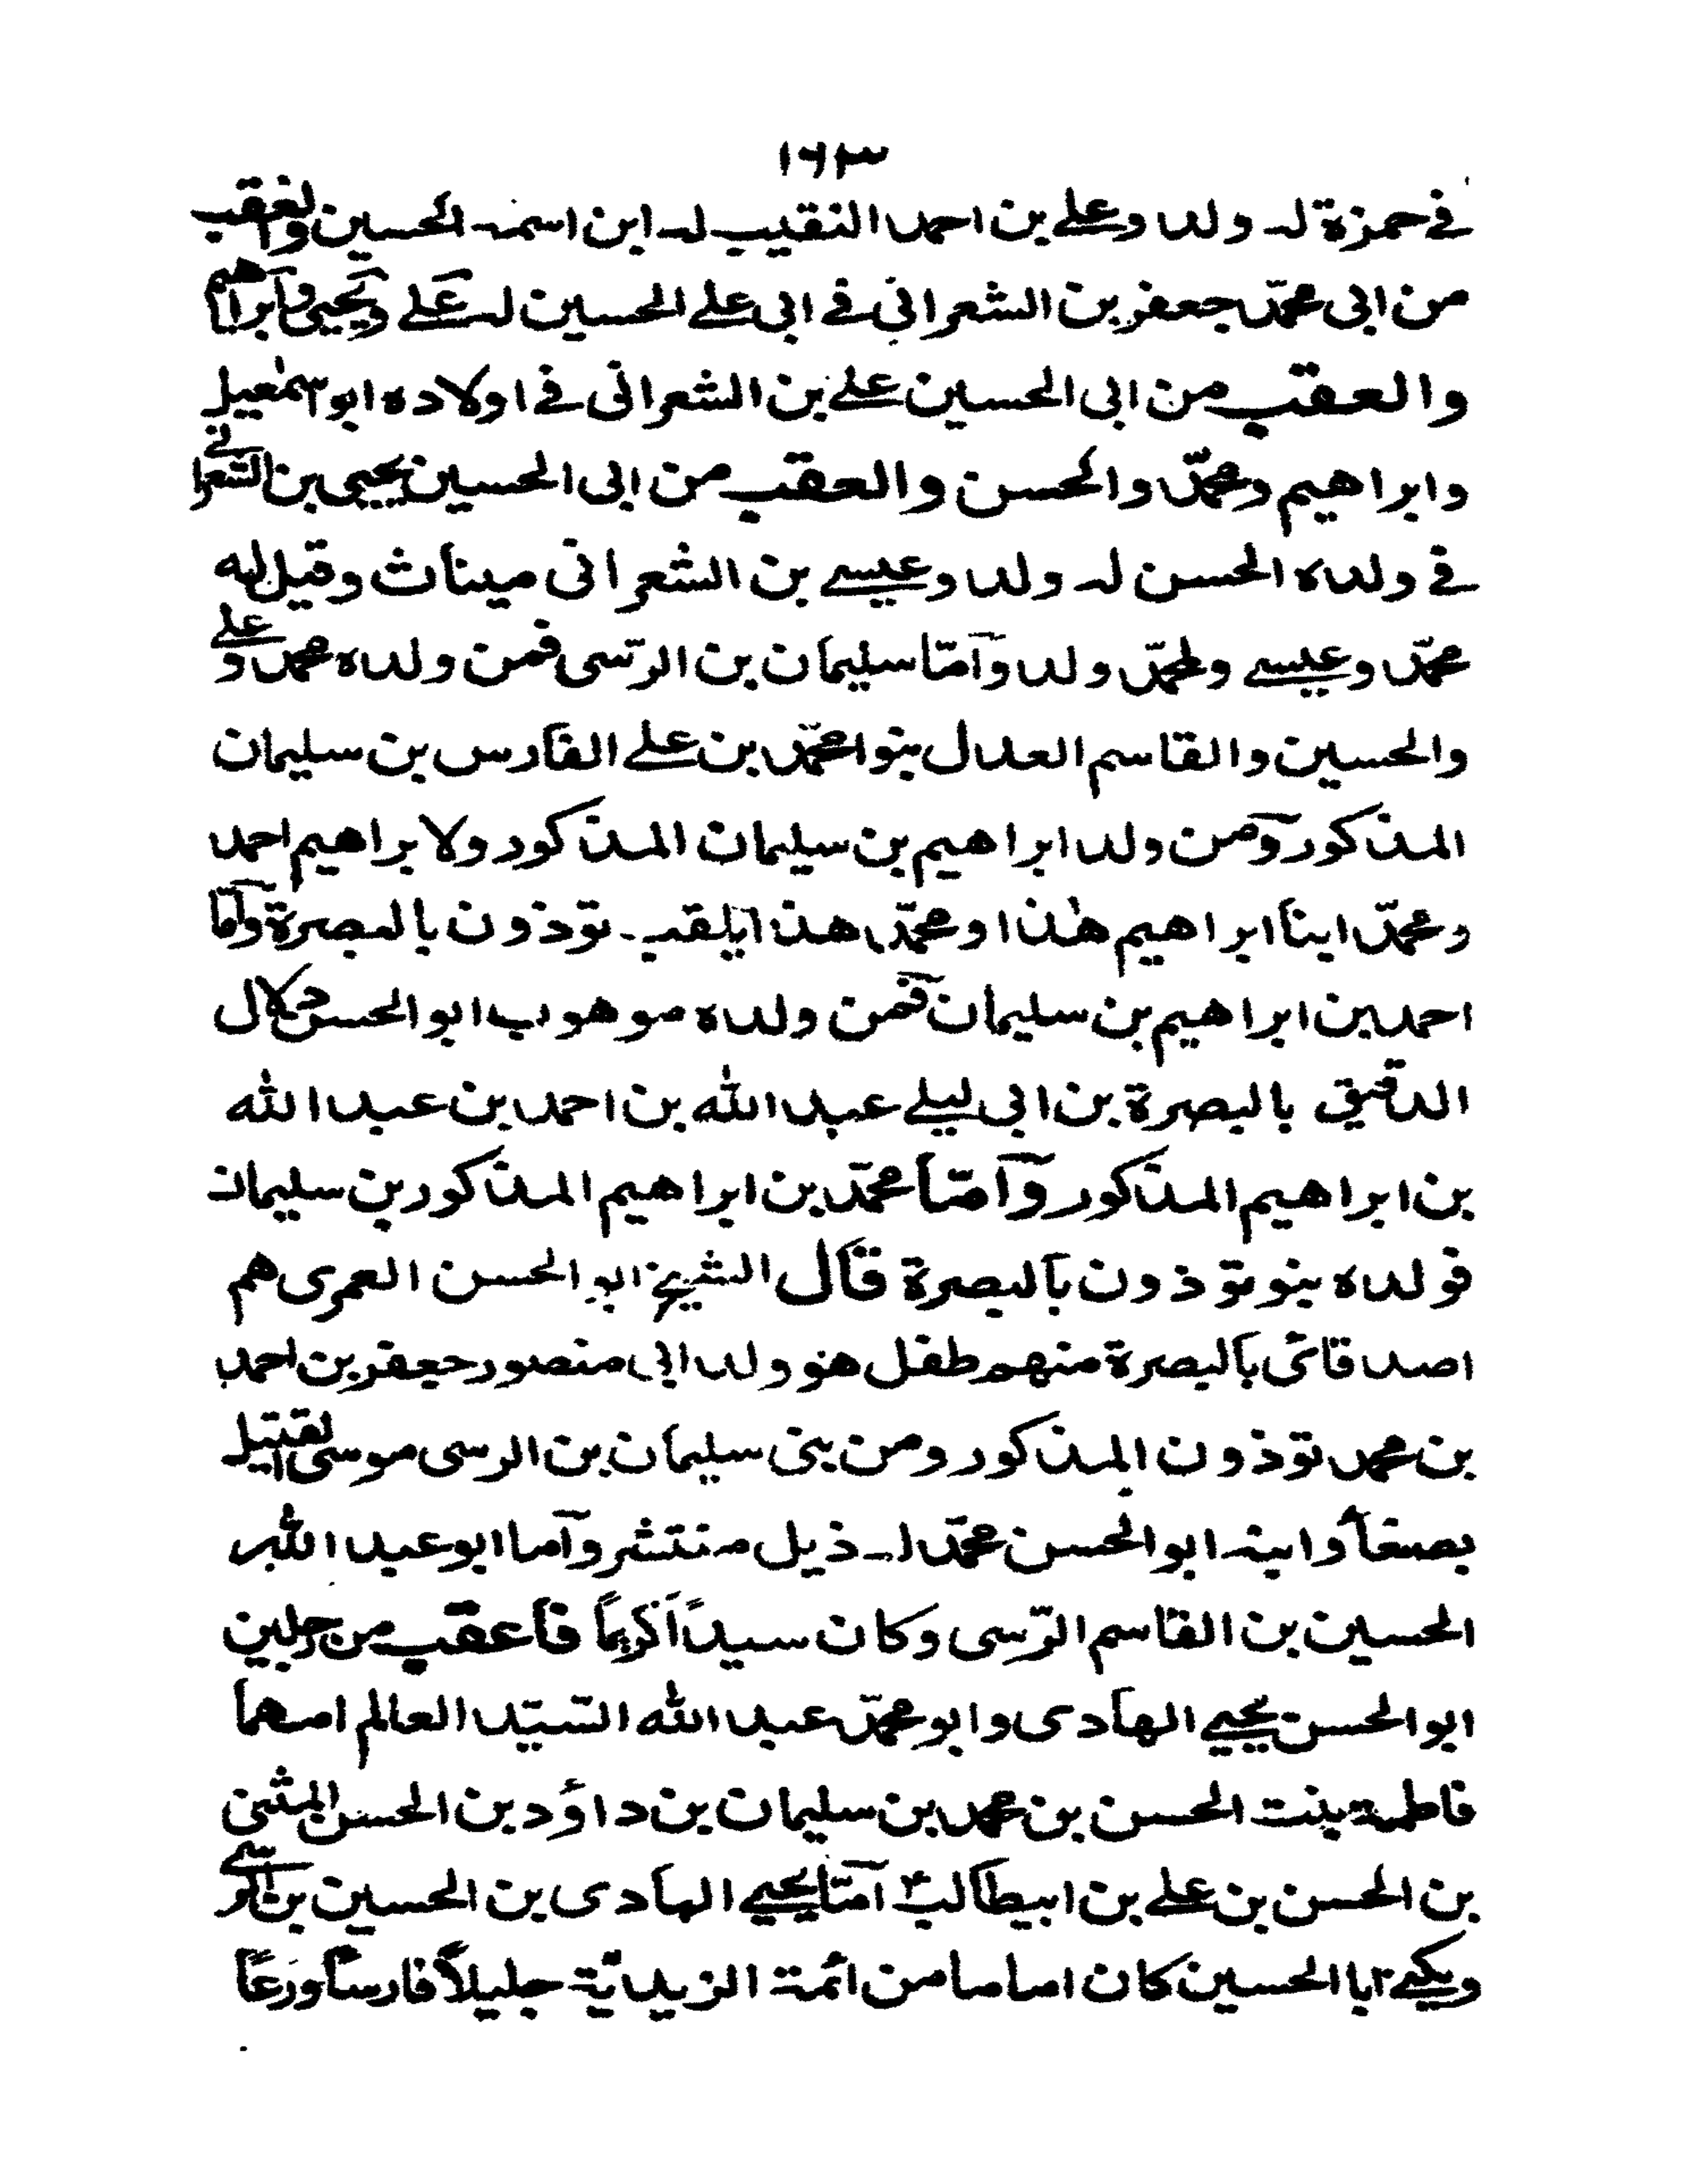 ١٦٣
في حمزة له ولد وعلي بن احمد النقيب له ابن اسمه الحسين والعقب
من ابى محمّد جعفر بن الشعرانى في ابى علي الحسين له علي ويحيى وابراهيم
والعقب من ابى الحسين علي بن الشعرانى في اولاده ابو اسمٰعيل
وابراهيم ومحمّد والحسن والعقب من ابى الحسين يحيى بن الشعراني
في ولده الحسن له ولد وعيسے بن الشعرانى ميناث وقيل له
محمّد وعيسے ولمحمّد ولد وآمّا سليمان بن الرّسى فمن ولده محمد وعلے
والحسين والقاسم العدل بنوا محمّد بن علے الفارس بن سليمان
المذكور ومن ولد ابراهيم بن سليمان المذكور ولابراهيم احمد
ومحمّد ابنا ابراهيم هٰذا ومحمّد هذا يلقب توذون بالبصرة وآمّا
احمد بن ابراهيم بن سليمان فمن ولده موهوب ابو الحسن دلال
الدقيق بالبصرة بن ابى ليلے عبد الله بن احمد بن عبد الله
بن ابراهيم المذكور وآمّا محمّد بن ابراهيم المذكور بن سليمان
فولده بنو توذون بالبصرة قال الشيخ ابو الحسن العمرى هم
اصدقائى بالبصرة منهم طفل هو ولد ابى منصور جعفر بن احمد
بن محمد توذون المذكور ومن بنى سليمان بن الرسى موسى القتيل
بصنعأ وابنه ابو الحسن محمّد له ذيل منتشر وآما ابو عبد الله
الحسين بن القاسم الرّسى وكان سيدًا كريمًا فاعقب من رجلين
ابو الحسن يحيے الهادى وابو محمّد عبد الله السّيّد العالم امهما
فاطمة بنت الحسن بن محمد بن سليمان بن داؤد بن الحسن المثنى
بن الحسن بن علے بن ابيطالبؑ آمّا يحيے الهادى بن الحسين بن الرسے
ويكنے ابا الحسين كان اماما من ائمة الزيديّة جليلاً فارسًا ورعًا